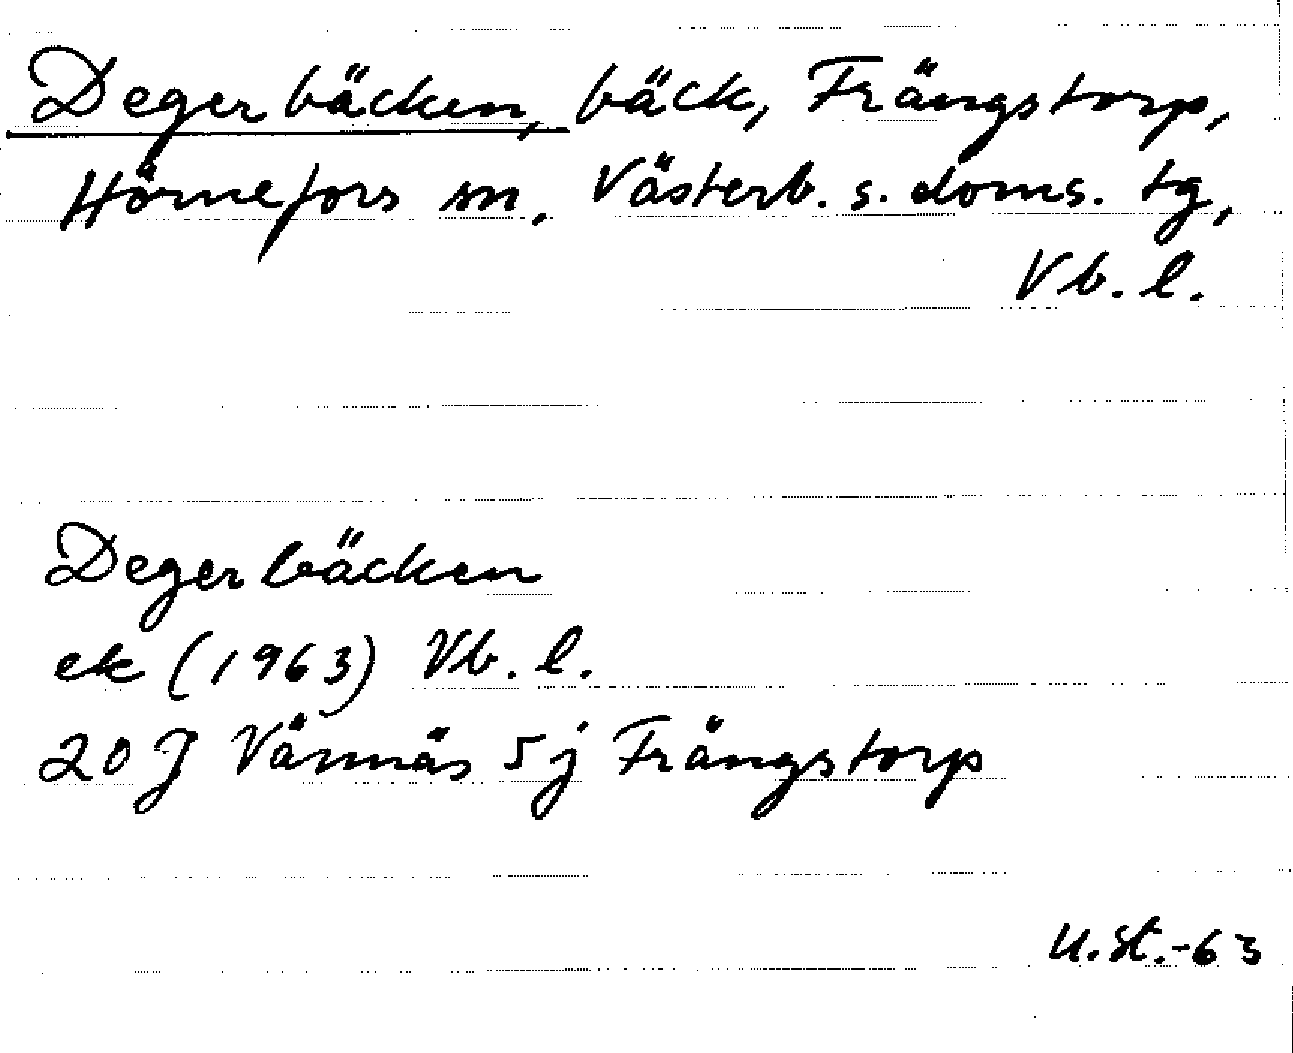 Degerbäcken, bäck, Frängstorp,
Hörnefors sn, Västerb. s. doms. tg,
Vb. l.
Degerbäcken
ek (1963) Vb. l.
20 J Vännäs 5 j Frängstorp
U.St.-63